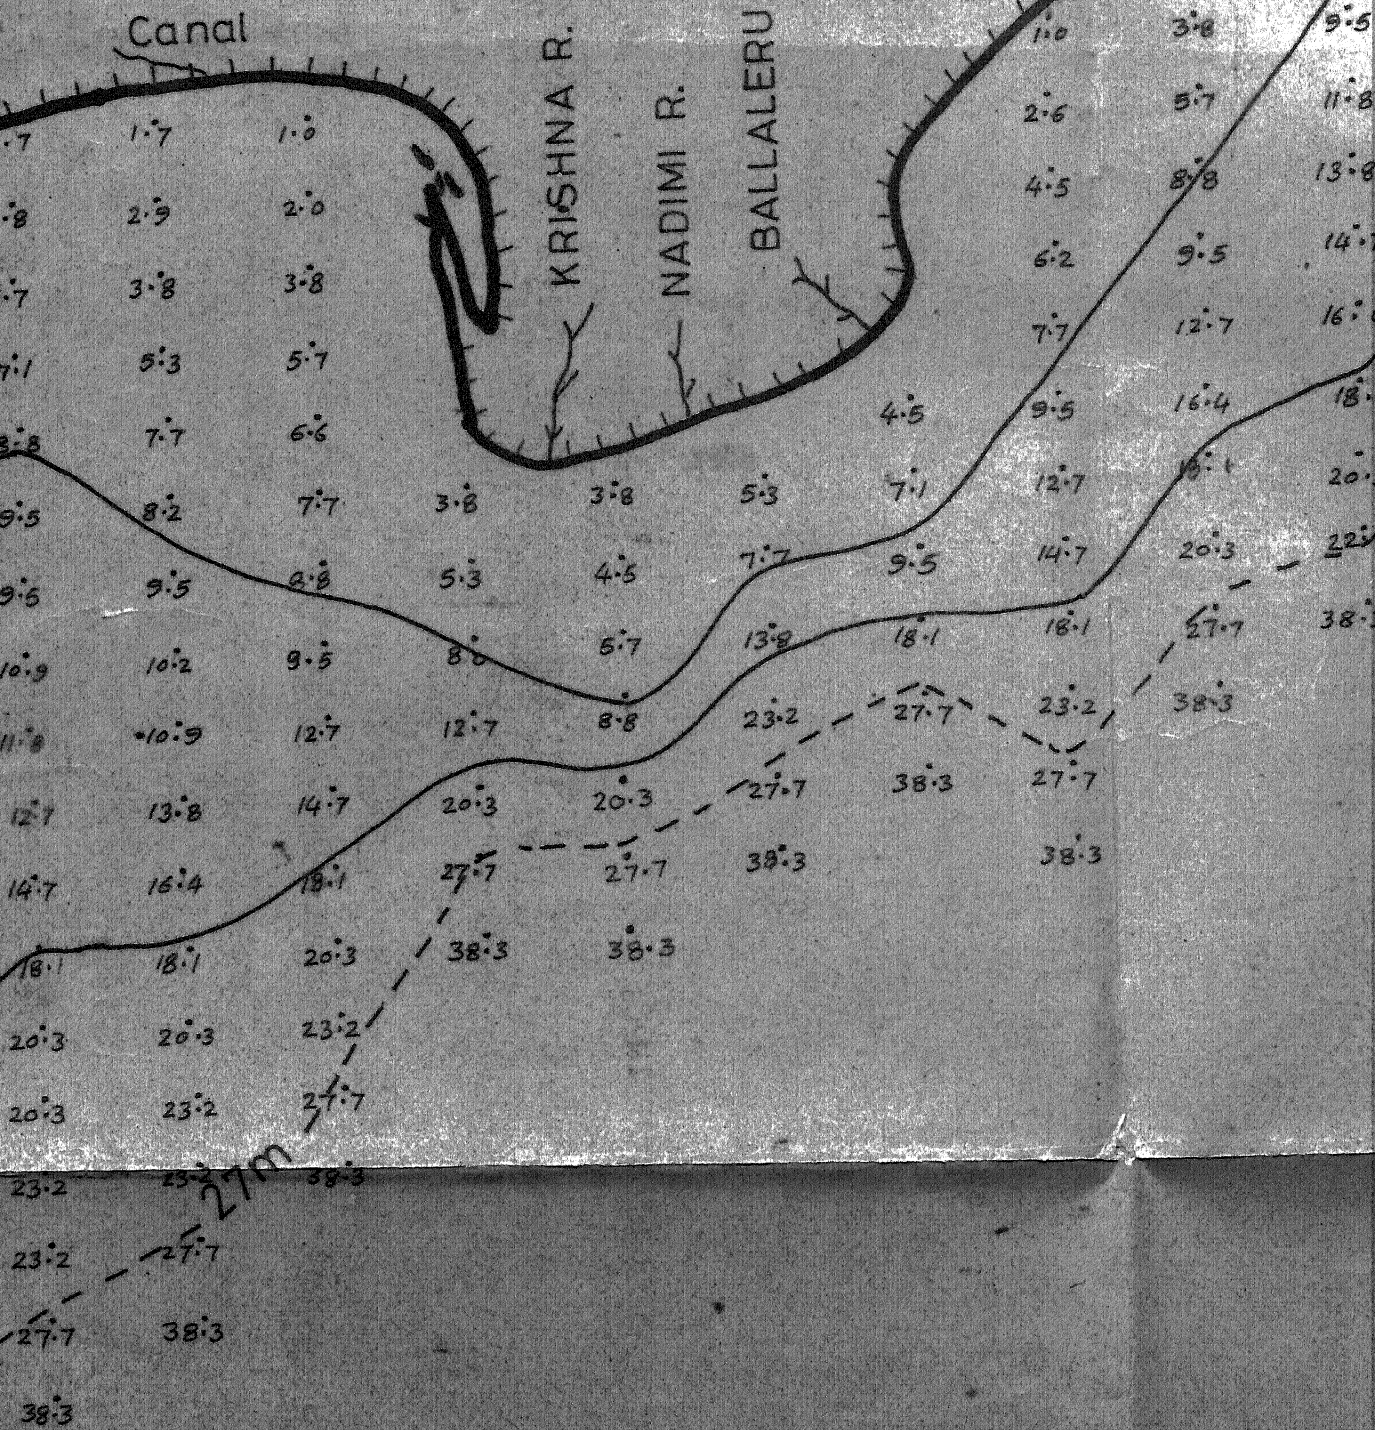 Canal
KRISHNA R.
NADIMI R.
BALLALERU
1.0 3.8 9.5
.7 1.7 1.0 2.6 5.7 11.8
.8 2.9 2.0 4.5 8.8 13.8
.7 3.8 3.8 6.2 9.5 14.7
7.1 5.3 5.7 7.7 12.7 16.
8.8 7.7 6.6 4.5 9.5 16.4 18.
9.5 8.2 7.7 3.8 3.8 5.3 7.1 12.7 18.1 20.
9.5 9.5 8.8 5.3 4.5 7.7 9.5 14.7 20.3 22.
10.9 10.2 9.5 5.7 13.8 18.1 18.1 27.7 38.3
11.8 10.9 12.7 12.7 8.8 23.2 27.7 23.2 38.3
12.7 13.8 14.7 20.3 20.3 27.7 38.3 27.7
14.7 16.4 18.1 27.7 27.7 38.3 38.3
18.1 18.1 20.3 38.3 38.3
20.3 20.3 23.2
20.3 23.2 27.7
27m
23.2 23.2 38.3
23.2 27.7
27.7 38.3
38.3